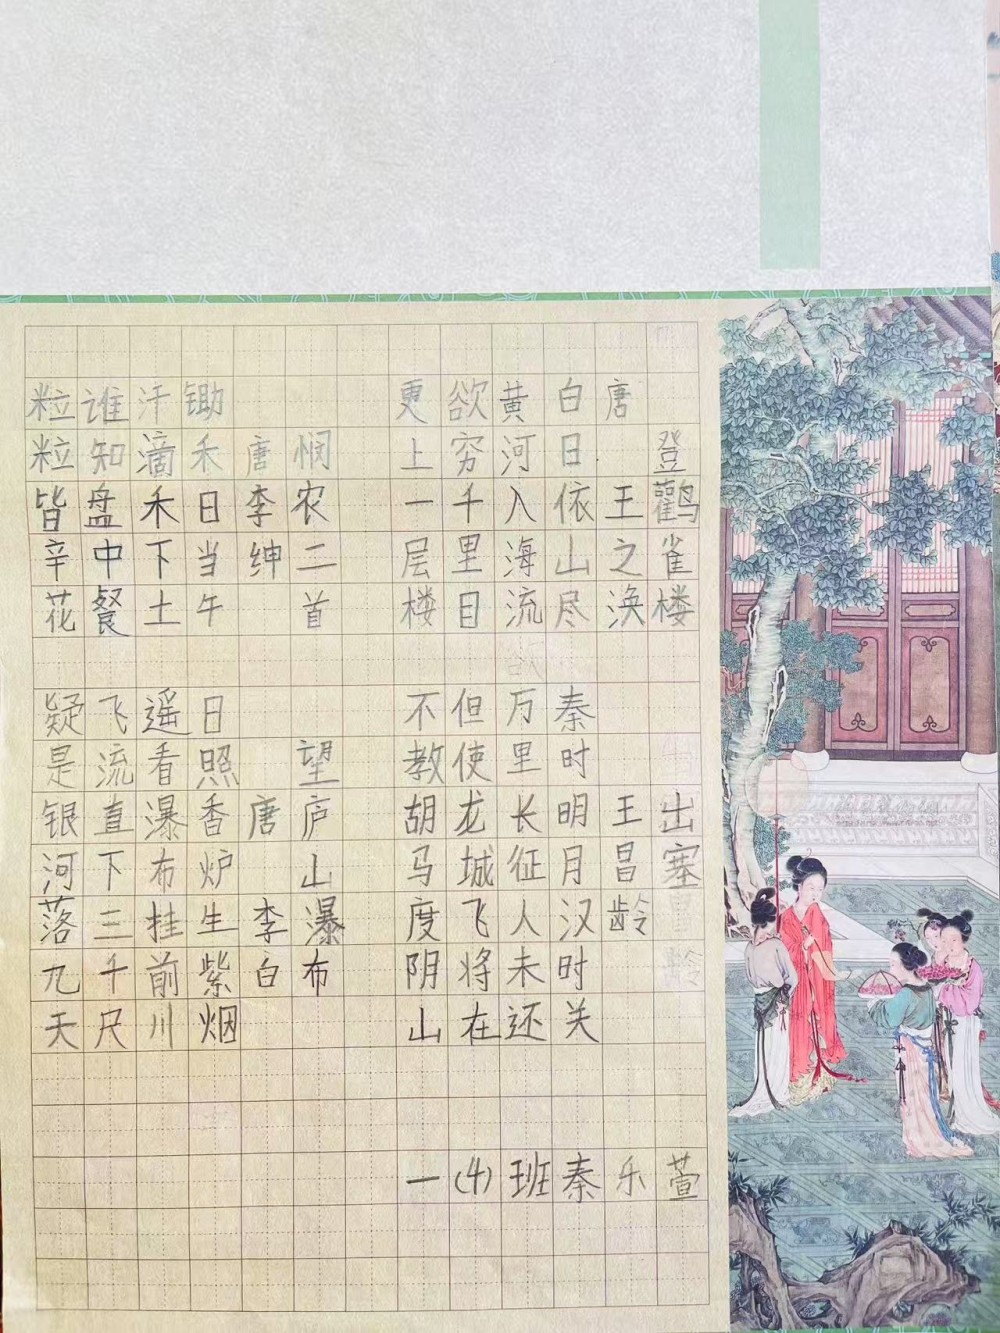 登鹳雀楼
唐 王之涣
白日依山尽
黄河入海流
欲穷千里目
更上一层楼
悯农二首
唐李绅
锄禾日当午
汗滴禾下土
谁知盘中餐
粒粒皆辛花
出塞
王昌龄
秦时明月汉时关
万里长征人未还
但使龙城飞将在
不教胡马度阴山
望庐山瀑布
唐 李白
日照香炉生紫烟
遥看瀑布挂前川
飞流直下三千尺
疑是银河落九天
一(4)班秦乐萱